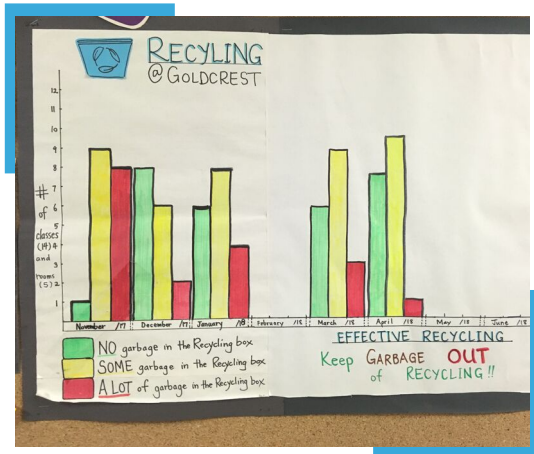 RECYLING
@ GOLDCREST
12
11
10
9
8
7
6
5
4
3
2
1
# of classes (19) and teams (5)
November /17 December /17 January /18 February /18 March /18 April /18 May /18 June /18
NO garbage in the Recycling box
SOME garbage in the Recycling box
A LOT of garbage in the Recycling box
EFFECTIVE RECYCLING
Keep GARBAGE OUT
of RECYCLING!!